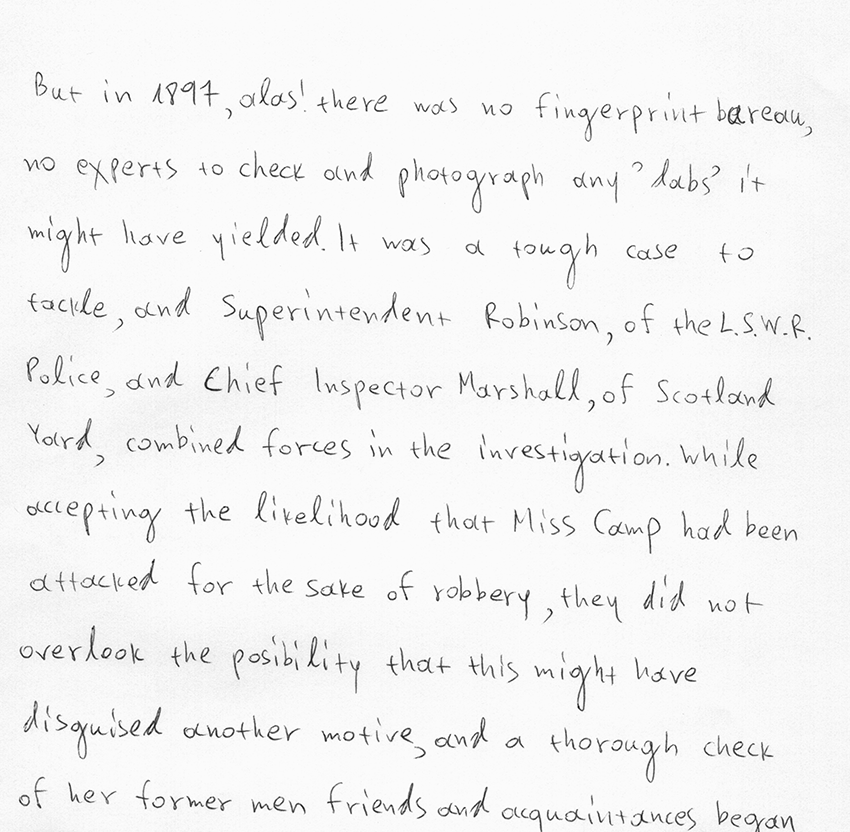 But in 1897, alas! there was no fingerprint bareau,
no experts to check and photograph any 'dabs' it
might have yielded. It was a tough case to
tackle, and Superintendent Robinson, of the L.S.W.R.
Police, and Chief Inspector Marshall, of Scotland
Yard, combined forces in the investigation. While
accepting the likelihood that Miss Camp had been
attacked for the sake of robbery, they did not
overlook the posibility that this might have
disguised another motive, and a thorough check
of her former men friends and acquaintances began